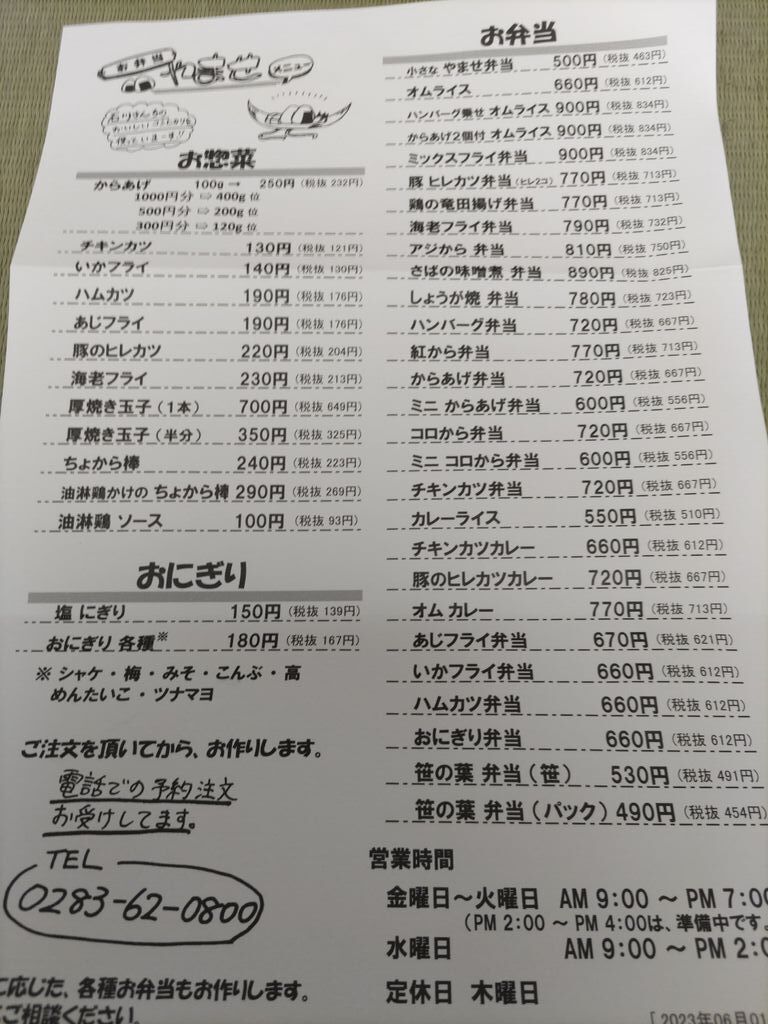 お弁当
やませ
メニュー
石川さんちの
おいしいコシヒカリを
使っていまーす!!
お惣菜
からあげ 100g→ 250円(税抜 232円)
1000円分 ⇨ 400g 位
500円分 ⇨ 200g 位
300円分 ⇨ 120g 位
チキンカツ 130円(税抜 121円)
いかフライ 140円(税抜 130円)
ハムカツ 190円(税抜 176円)
あじフライ 190円(税抜 176円)
豚のヒレカツ 220円(税抜 204円)
海老フライ 230円(税抜 213円)
厚焼き玉子(1本) 700円(税抜 649円)
厚焼き玉子(半分) 350円(税抜 325円)
ちょから棒 240円(税抜 223円)
油淋鶏かけの ちょから棒 290円(税抜 269円)
油淋鶏 ソース 100円(税抜 93円)
おにぎり
塩 にぎり 150円(税抜 139円)
おにぎり 各種※ 180円(税抜 167円)
※ シャケ・梅・みそ・こんぶ・高
めんたいこ・ツナマヨ
ご注文を頂いてから、お作りします。
電話での予約注文
お受けしてます。
TEL
0283-62-0800
に応じた、各種お弁当もお作りします。
ご相談ください。
お弁当
小さな やませ弁当 500円(税抜 463円)
オムライス 660円(税抜 612円)
ハンバーグ乗せ オムライス 900円(税抜 834円)
からあげ2個付 オムライス 900円(税抜 834円)
ミックスフライ弁当 900円(税抜 834円)
豚 ヒレカツ弁当(ヒレ2コ) 770円(税抜 713円)
鶏の竜田揚げ弁当 770円(税抜 713円)
海老フライ弁当 790円(税抜 732円)
アジから 弁当 810円(税抜 750円)
さばの味噌煮 弁当 890円(税抜 825円)
しょうが焼 弁当 780円(税抜 723円)
ハンバーグ弁当 720円(税抜 667円)
紅から弁当 770円(税抜 713円)
からあげ弁当 720円(税抜 667円)
ミニ からあげ弁当 600円(税抜 556円)
コロから弁当 720円(税抜 667円)
ミニ コロから弁当 600円(税抜 556円)
チキンカツ弁当 720円(税抜 667円)
カレーライス 550円(税抜 510円)
チキンカツカレー 660円(税抜 612円)
豚のヒレカツカレー 720円(税抜 667円)
オム カレー 770円(税抜 713円)
あじフライ弁当 670円(税抜 621円)
いかフライ弁当 660円(税抜 612円)
ハムカツ弁当 660円(税抜 612円)
おにぎり弁当 660円(税抜 612円)
笹の葉 弁当(笹) 530円(税抜 491円)
笹の葉 弁当(パック) 490円(税抜 454円)
営業時間
金曜日〜火曜日 AM 9:00 〜 PM 7:00
(PM 2:00 〜 PM 4:00は、準備中です
水曜日 AM 9:00 〜 PM 2:0
定休日 木曜日
「2023年06月01